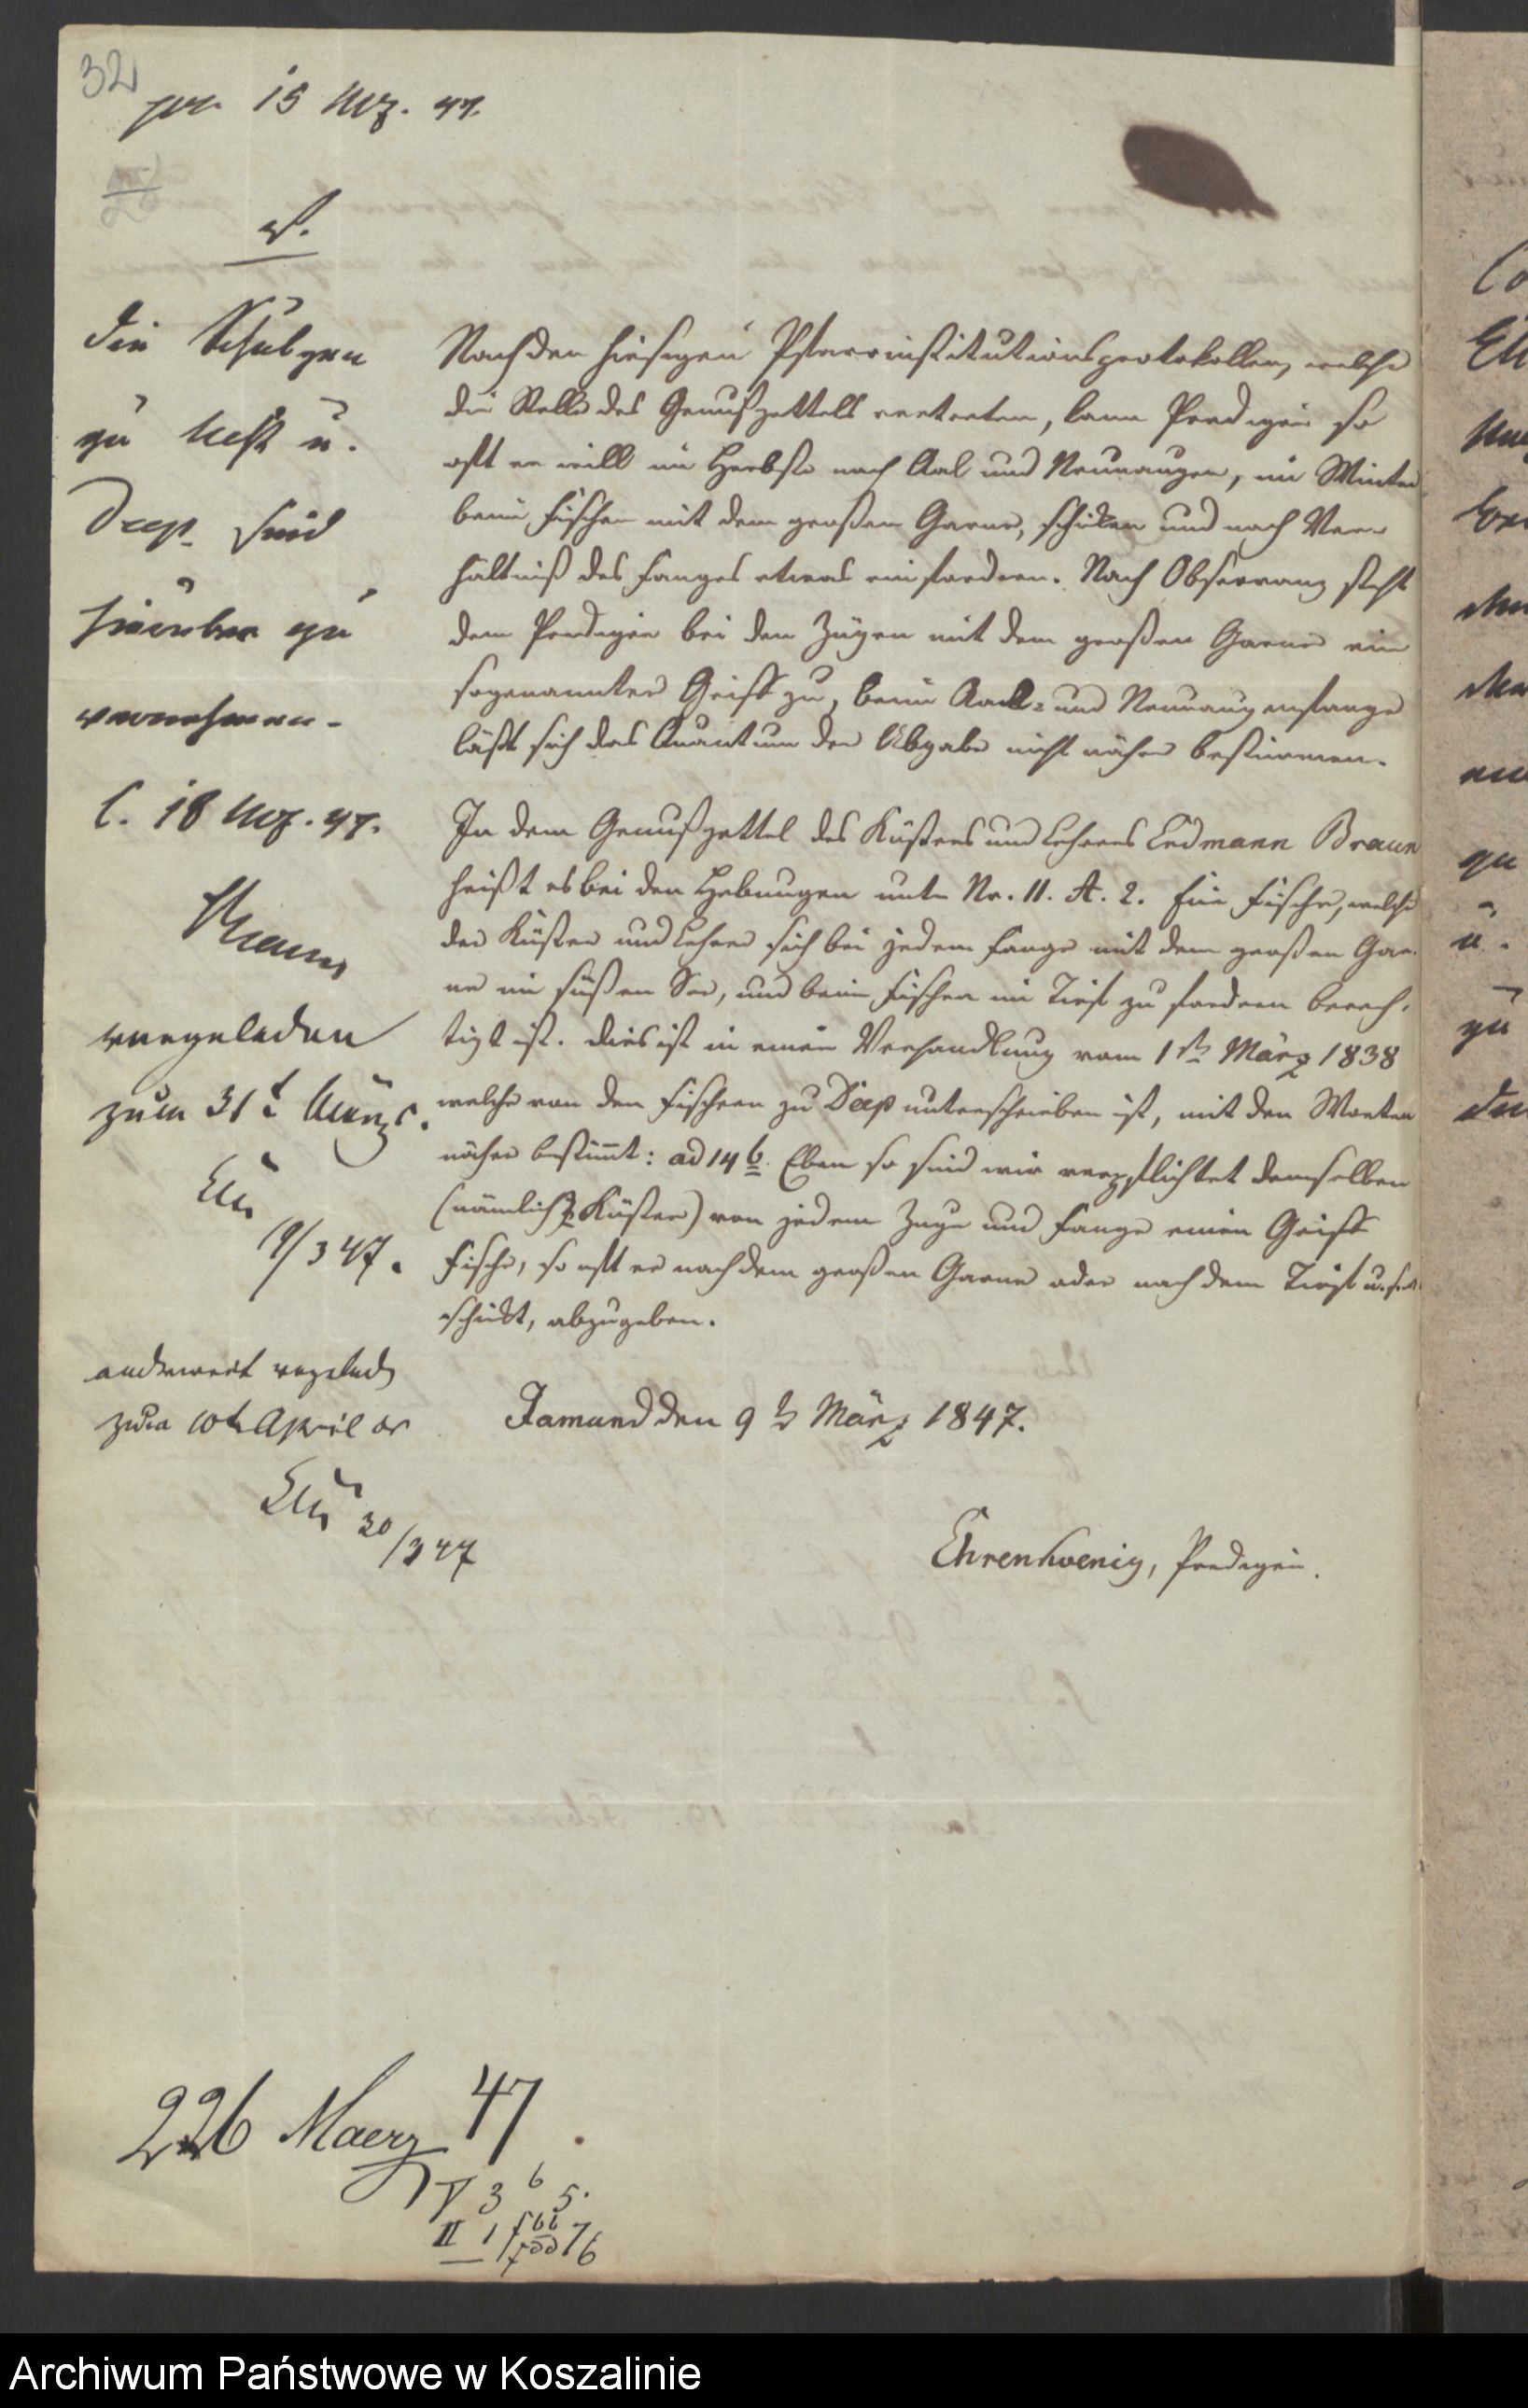 32
pr 15 Mrz. 47.
V.
die Schulzen
zu Nest u.
Deep sind
hierüber zu
vernehmen.
C. 18 Mrz. 47.
vorgeladen
zum 31t März c.
19/3 47.
anderweit vorgelad
zum 10t April cr
30/3 47
Nach den hiesigen Pfarrinstitutionsprotokollen, welche
die Stelle des Genußzettels vertreten, kann Prediger so
oft er will im Herbste nach Aal und Neunaugen, im Winter
beim Fischen mit dem großen Garne, schicken und nach Ver-
hältniß des Fanges etwas einfordern. Nach Observanz steht
dem Prediger bei den Zügen mit dem großen Garne ein
sogenannter Griff zu, beim Aal- und Neunaugenfange
läßt sich das Quantum der Abgabe nicht näher bestimmen.
In dem Genußzettel des Küsters und Lehrers Erdmann Braun
heißt es bei den Hebungen unter Nr. 11. A. 2. für Fische, welche
der Küster und Lehrer sich bei jedem Fange mit dem großen Gar-
ne im süßen See, und beim Fischen im Tief zu fordern berech-
tigt ist. Dies ist in einer Verhandlung vom 1st März 1838
welche von den Fischern zu Deep unterschrieben ist, mit den Worten
näher bestimmt: ad 14 b. Eben so sind wir verpflichtet demselben
(nämlich d Küster) von jedem Zuge und Fange einen Griff
Fische, so oft er nach dem großen Garne oder nach dem Tief u.s.w.
schickt, abzugeben.
Jamund den 9t März 1847.
Ehrenkoenig, Prediger.
226 Maerz 47
V 3 6 5.
II 1
Archiwum Państwowe w Koszalinie